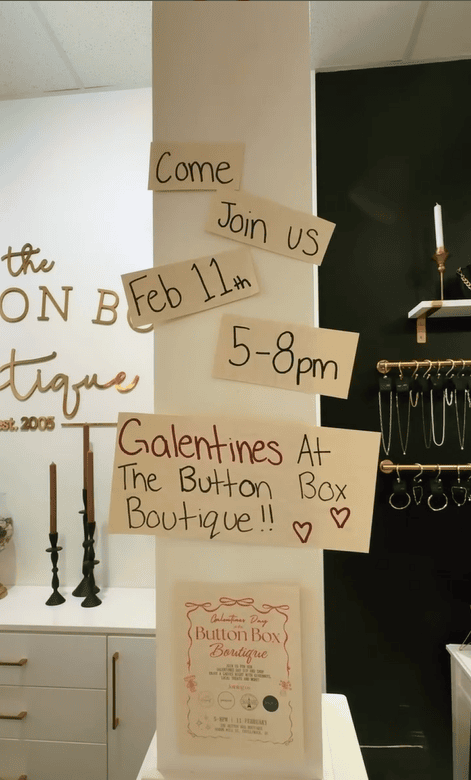 Come
Join us
Feb 11th
5-8pm
Galentines At
The Button Box
Boutique!!
the
ON B
tique
est. 2005
Galentines Day
Button Box
Boutique
JOIN US FOR OUR
5-8PM | 11 FEBRUARY